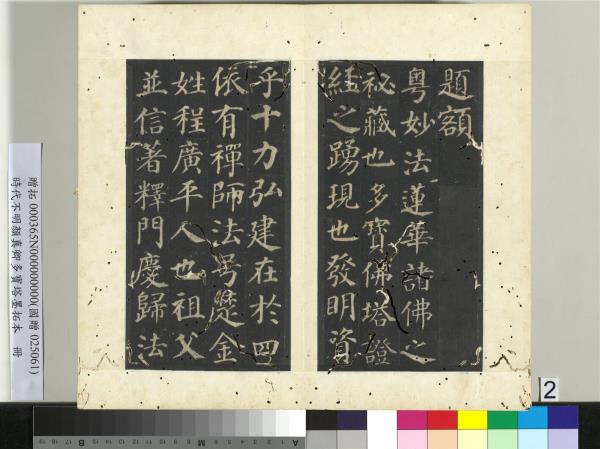 題額
粤妙法蓮華諸佛之
祕藏也多寶佛塔證
經之踴現也發明資
乎十力弘建在於四
依有禪師法号楚金
姓程廣平人也祖父
並信著釋門慶歸法
贈拓 000365N000000000(國贈 025061)
時代不明顏真卿多寶塔墨拓本 冊
2